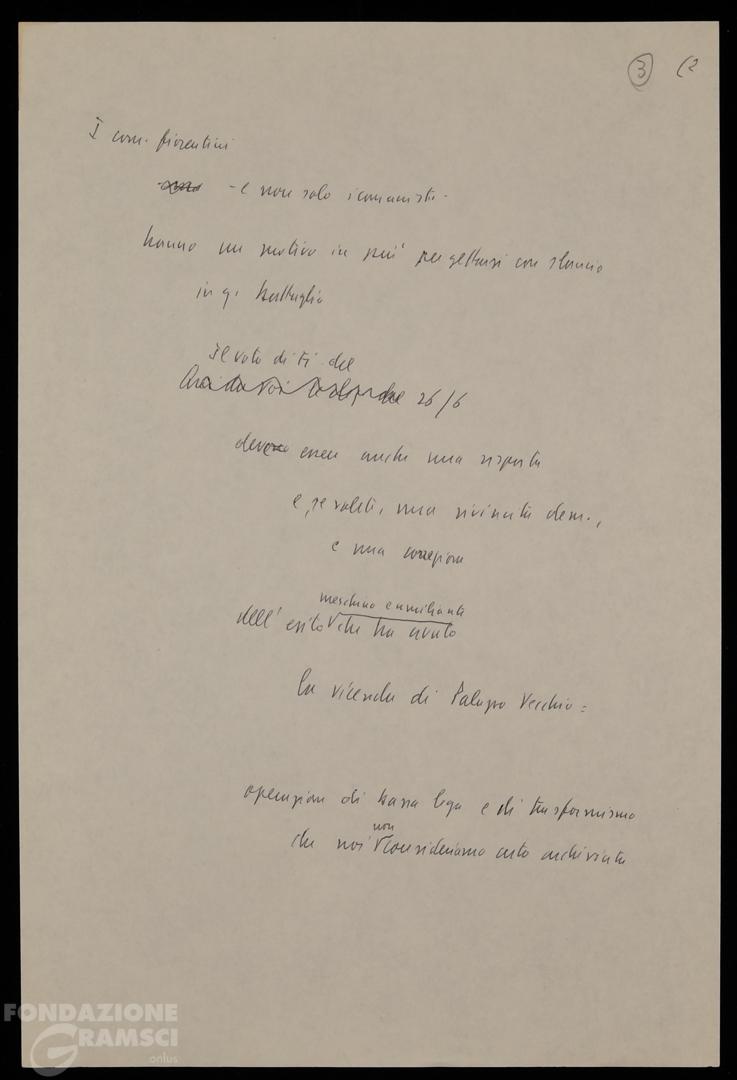 3 (2
I com. fiorentini
- e non solo i comunisti -
hanno un motivo in più per gettarsi con slancio
in q. battaglia
Il voto di Fi del
26/6
deve essere anche una risposta
e, se volete, una rivincita dem.,
e una correzione
meschino e umiliante
dell'esito che ha avuto
la vicenda di Palazzo Vecchio =
operazione di bassa lega e di trasformismo
non
che noi consideriamo certo archiviata
FONDAZIONE
GRAMSCI
onlus